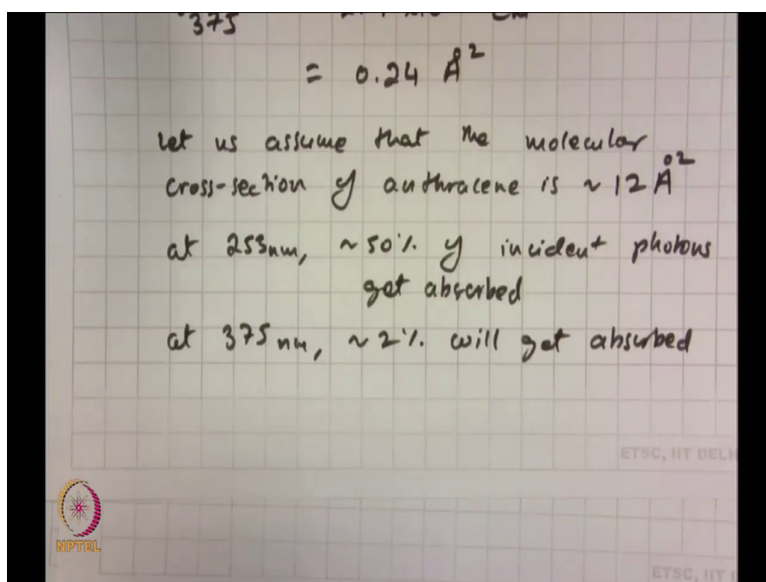 375
= 0.24 Å²
Let us assume that the molecular
cross-section of anthracene is ~ 12 Å²
at 253nm, ~50% of incident photons
get absorbed
at 375 nm, ~2% will get absorbed
ETSC, IIT DELH
NPTEL
ETSC, IIT